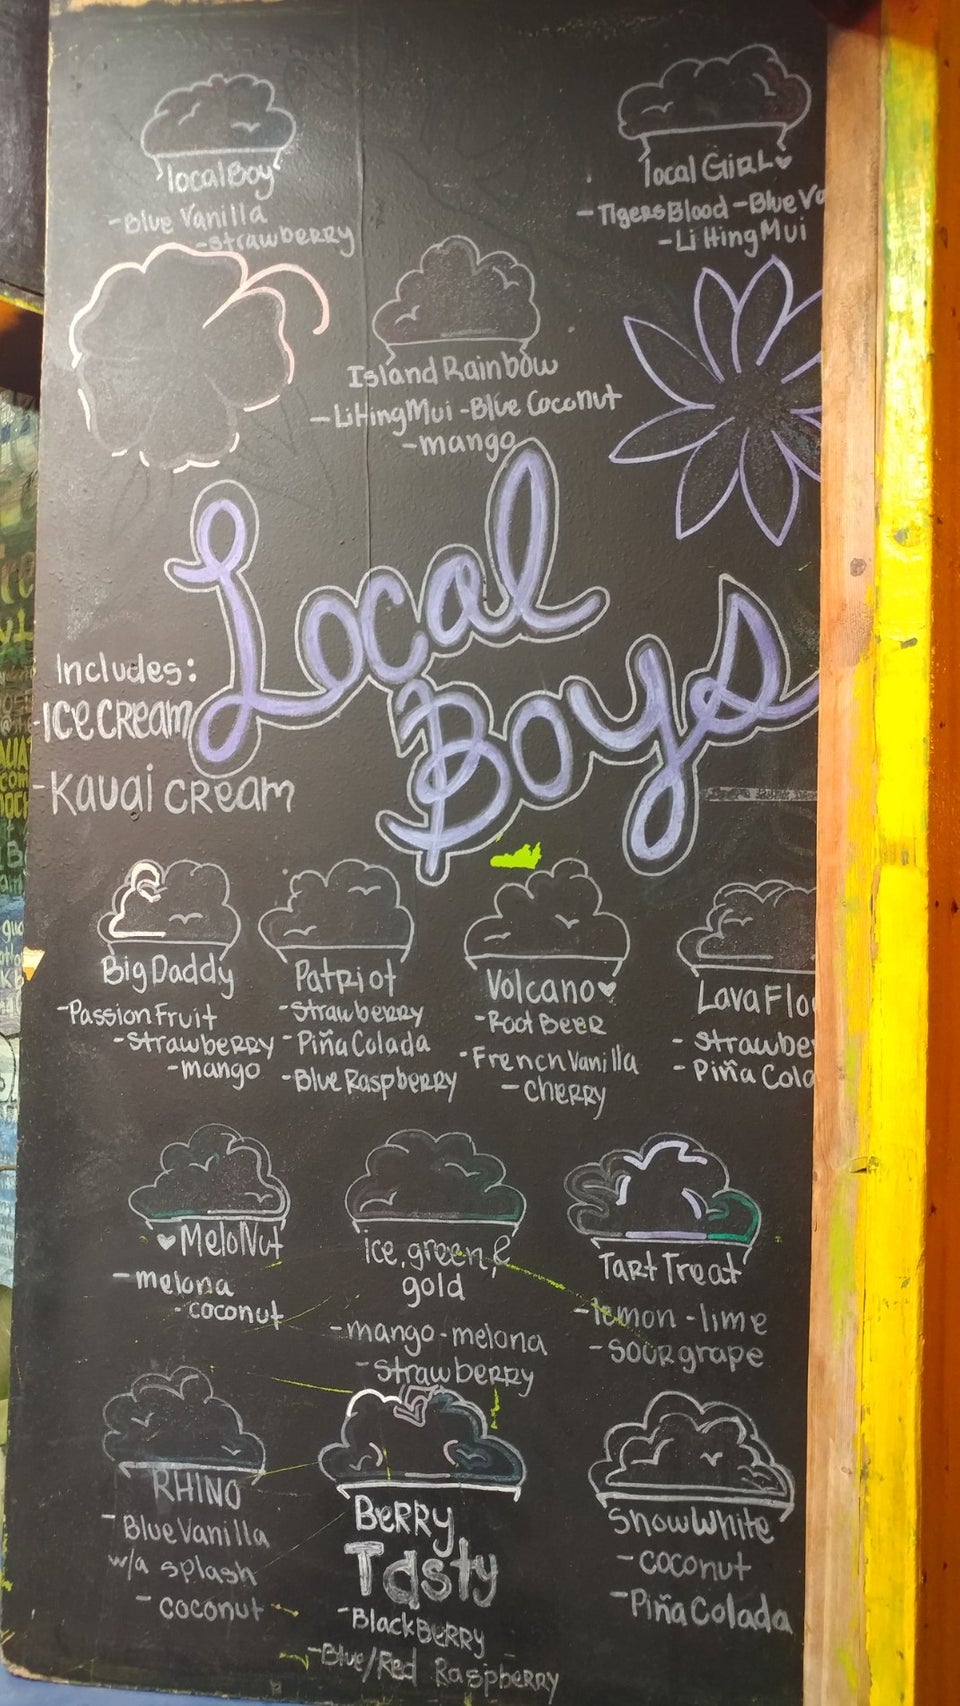 localBoy
-Blue Vanilla
-Strawberry
local GiRL♥
-TigersBlood -Blue Va
-Li Hing Mui
Island Rainbow
-LiHingMui -Blue Coconut
-mango
Local
Boys
Includes:
-ICE CREAM
-Kauai CReam
BigDaddy
-Passion Fruit
-Strawberry
-mango
PatRiot
-Strawberry
-Piña Colada
-Blue Raspberry
Volcano♥
-Root BeeR
-French Vanilla
-Cherry
Lava Flo
-Strawbe
-Piña Cola
♥MeloNut
-melona
-coconut
ice, green, &
gold
-mango-melona
-Strawberry
Tart Treat
-lemon-lime
-sour grape
RHINO
-BlueVanilla
w/a splash
-coconut
BeRRy
Tasty
-BlackBeRRy
-Blue/Red Raspberry
SnowWhite
-coconut
-Piña Colada